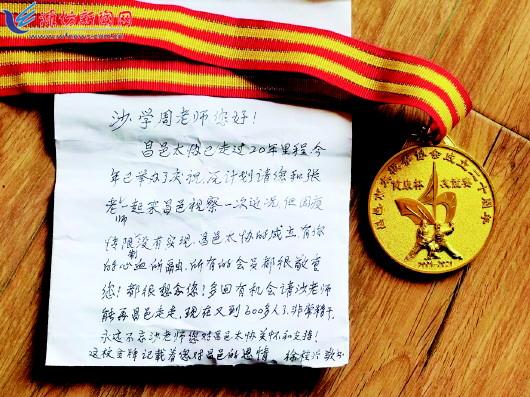 潍坊新闻网
www.wfnews.com.cn
沙学周老师您好！
昌邑太协已走过20年里程，今
年已举办了庆祝，原计划请您和张
老师一起来昌邑视察一次 但因疫
情限制没有实现，昌邑太协的成立有您
的心血所融，所有的会员都很敬重
您！都很想念您！多回有机会请沙老师
能再昌邑走走，现在又到600多人了，非常精干，
永远不忘沙老师您对昌邑太协关怀和支持！
这枚金牌记载着您对昌邑的恩情 徐
昌邑市太极拳协会成立二十周年
健康杯 交流赛
2001-2021